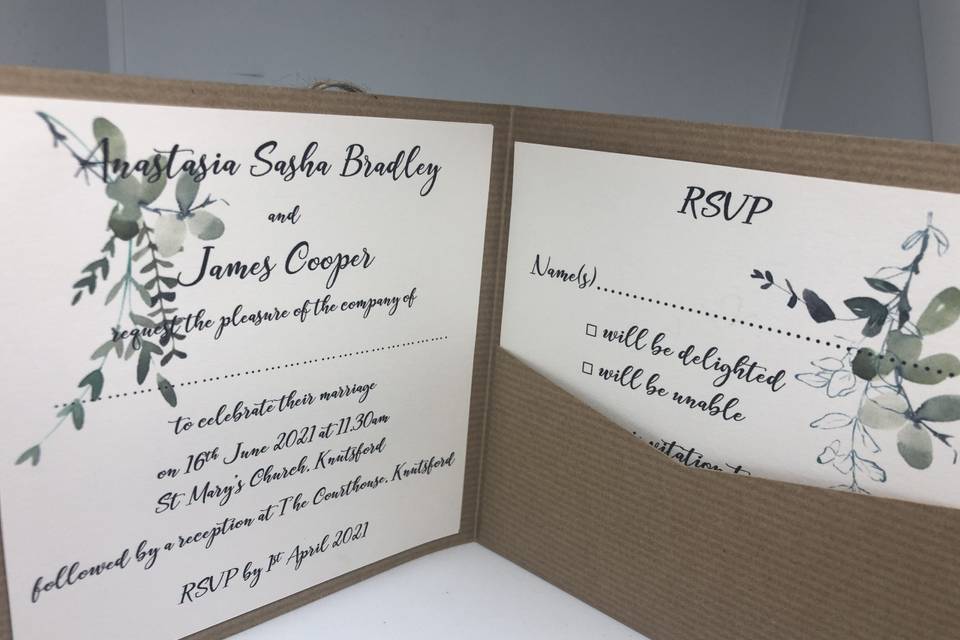 Anastasia Sasha Bradley
and
James Cooper
request the pleasure of the company of
to celebrate their marriage
on 16th June 2021 at 11.30am
St Mary's Church, Knutsford
followed by a reception at The Courthouse, Knutsford
RSVP by 1st April 2021
RSVP
Name(s)
☐ will be delighted
☐ will be unable
invitation